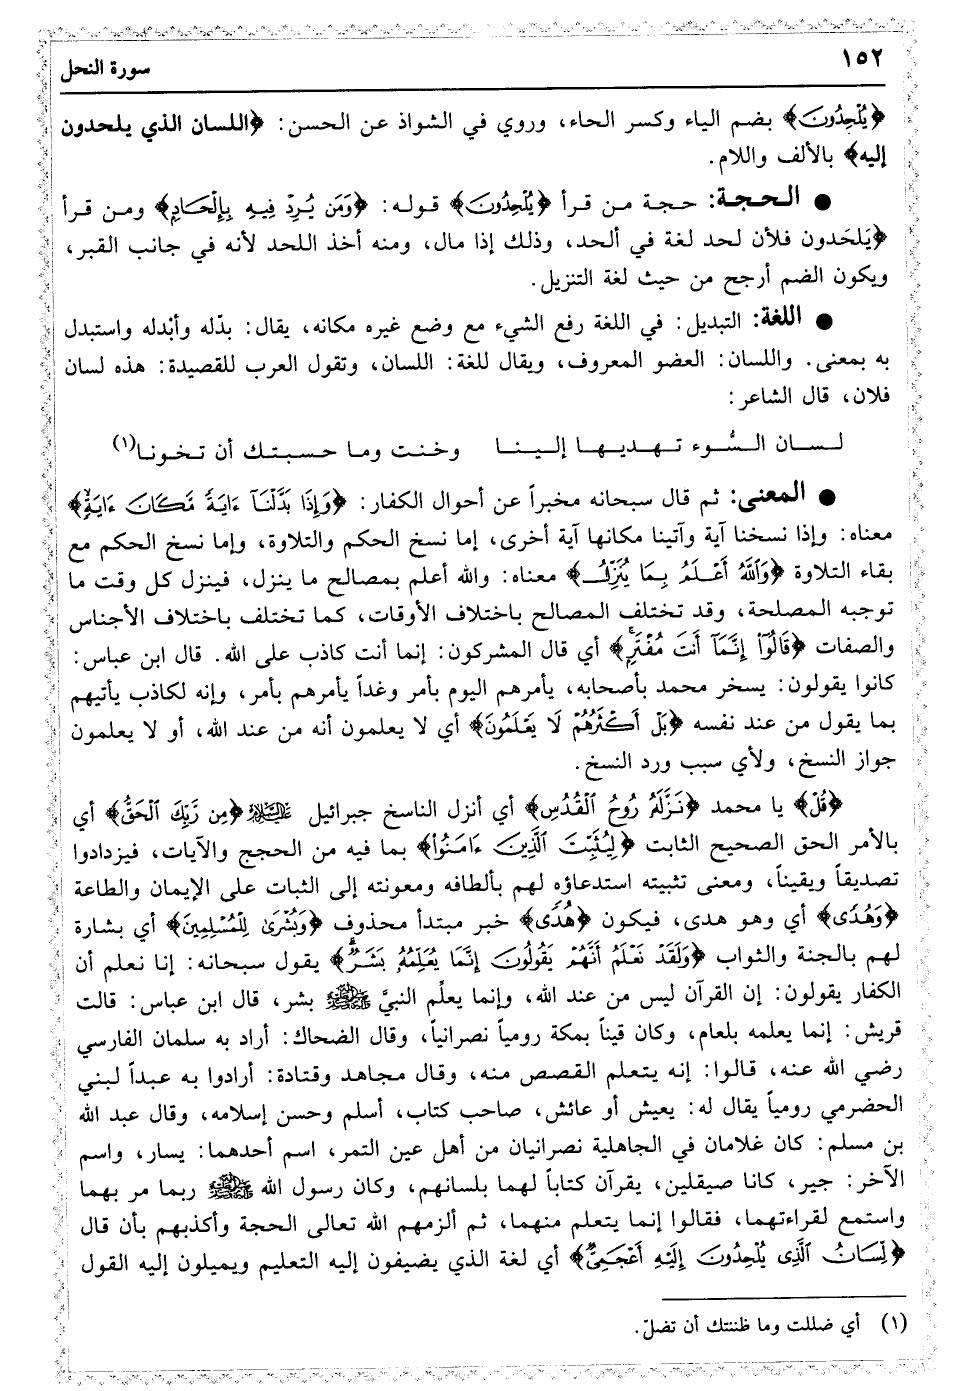 ١٥٢
سورة النحل
﴿يُلْحِدُونَ﴾ بضم الياء وكسر الحاء، وروي في الشواذ عن الحسن: ﴿اللسان الذي يلحدون
إليه﴾ بالألف واللام.
● الحجة: حجة من قرأ ﴿يُلْحِدُونَ﴾ قوله: ﴿وَمَن يُرِدْ فِيهِ بِإِلْحَادٍ﴾ ومن قرأ
﴿يَلحَدون فلأن لحد لغة في ألحد، وذلك إذا مال، ومنه أخذ اللحد لأنه في جانب القبر،
ويكون الضم أرجح من حيث لغة التنزيل.
● اللغة: التبديل: في اللغة رفع الشيء مع وضع غيره مكانه، يقال: بدّله وأبْدله واستبدل
به بمعنى. واللسان: العضو المعروف، ويقال للغة: اللسان، وتقول العرب للقصيدة: هذه لسان
فلان، قال الشاعر:
لسان السُّوء تهديها إلينا وخنت وما حسبتك أن تخونا(١)
● المعنى: ثم قال سبحانه مخبراً عن أحوال الكفار: ﴿وَإِذَا بَدَّلْنَآ ءَايَةً مَّكَانَ ءَايَةٍۙ﴾
معناه: وإذا نسخنا آية وآتينا مكانها آية أخرى، إما نسخ الحكم والتلاوة، وإما نسخ الحكم مع
بقاء التلاوة ﴿وَٱللَّهُ أَعْلَمُ بِمَا يُنَزِّلُ﴾ معناه: والله أعلم بمصالح ما ينزل، فينزل كل وقت ما
توجبه المصلحة، وقد تختلف المصالح باختلاف الأوقات، كما تختلف باختلاف الأجناس
والصفات ﴿قَالُوٓا۟ إِنَّمَآ أَنتَ مُفْتَرٍۭ﴾ أي قال المشركون: إنما أنت كاذب على الله. قال ابن عباس:
كانوا يقولون: يسخر محمد بأصحابه، يأمرهم اليوم بأمر وغداً يأمرهم بأمر، وإنه لكاذب يأتيهم
بما يقول من عند نفسه ﴿بَلْ أَكْثَرُهُمْ لَا يَعْلَمُونَ﴾ أي لا يعلمون أنه من عند الله، أو لا يعلمون
جواز النسخ، ولأي سبب ورد النسخ.
﴿قُلْ﴾ يا محمد ﴿نَزَّلَهُۥ رُوحُ ٱلْقُدُسِ﴾ أي أنزل الناسخ جبرائيل عليه السلام ﴿مِن رَّبِّكَ ٱلْحَقُّ﴾ أي
بالأمر الحق الصحيح الثابت ﴿لِيُثَبِّتَ ٱلَّذِينَ ءَامَنُوا۟﴾ بما فيه من الحجج والآيات، فيزدادوا
تصديقاً ويقيناً، ومعنى تثبيته استدعاؤه لهم بألطافه ومعونته إلى الثبات على الإيمان والطاعة
﴿وَهُدًى﴾ أي وهو هدى، فيكون ﴿هُدًى﴾ خبر مبتدأ محذوف ﴿وَبُشْرَىٰ لِلْمُسْلِمِينَ﴾ أي بشارة
لهم بالجنة والثواب ﴿وَلَقَدْ نَعْلَمُ أَنَّهُمْ يَقُولُونَ إِنَّمَا يُعَلِّمُهُۥ بَشَرٌ﴾ يقول سبحانه: إنا نعلم أن
الكفار يقولون: إن القرآن ليس من عند الله، وإنما يعلِّم النبيَّ ﷺ بشر، قال ابن عباس: قالت
قريش: إنما يعلمه بلعام، وكان قيناً بمكة رومياً نصرانياً، وقال الضحاك: أراد به سلمان الفارسي
رضي الله عنه، قالوا: إنه يتعلم القصص منه، وقال مجاهد وقتادة: أرادوا به عبداً لبني
الحضرمي رومياً يقال له: يعيش أو عائش، صاحب كتاب، أسلم وحسن إسلامه، وقال عبد الله
بن مسلم: كان غلامان في الجاهلية نصرانيان من أهل عين التمر، اسم أحدهما: يسار، واسم
الآخر: جير، كانا صيقلين، يقرآن كتاباً لهما بلسانهم، وكان رسول الله ﷺ ربما مر بهما
واستمع لقراءتهما، فقالوا إنما يتعلم منهما، ثم ألزمهم الله تعالى الحجة وأكذبهم بأن قال
﴿لِّسَانُ ٱلَّذِى يُلْحِدُونَ إِلَيْهِ أَعْجَمِىٌّ﴾ أي لغة الذي يضيفون إليه التعليم ويميلون إليه القول
(١) أي ضللت وما ظننتك أن تضلّ.